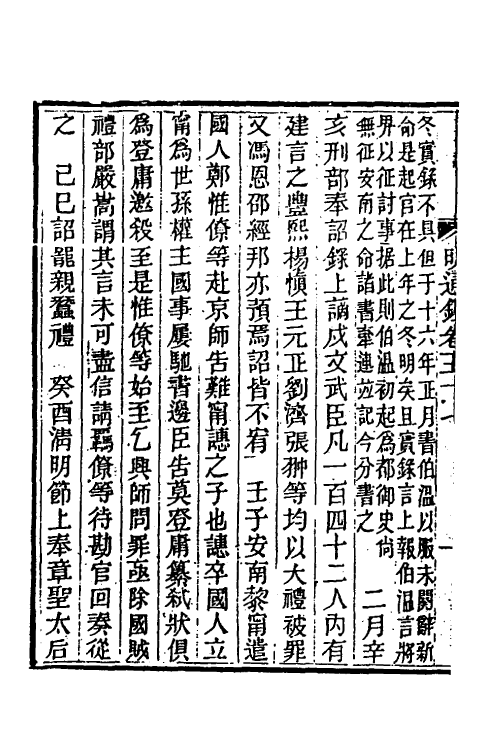 明通鑑卷五十七
一
冬實錄不具但于十六年正月書伯溫以服未闋辭新
命是起官在上年之冬明矣且實錄言上報伯溫言將
畀以征討事據此則伯溫初起爲都御史尙
無征安南之命諸書牽連竝記今分書之
二月辛
亥刑部奉詔錄上謫戍文武臣凡一百四十二人內有
建言之豐熙楊愼王元正劉濟張翀等均以大禮被罪
又馮恩邵經邦亦預焉詔皆不宥 壬子安南黎甯遣
國人鄭惟僚等赴京師吿難甯譓之子也譓卒國人立
甯爲世孫權主國事屢馳書邊臣吿莫登庸纂弑狀俱
爲登庸邀殺至是惟僚等始至乞興師問罪亟除國賊
禮部嚴嵩謂其言未可盡信請羈僚等待勘官回奏從
之 己巳詔罷親蠶禮 癸酉淸明節上奉章聖太后